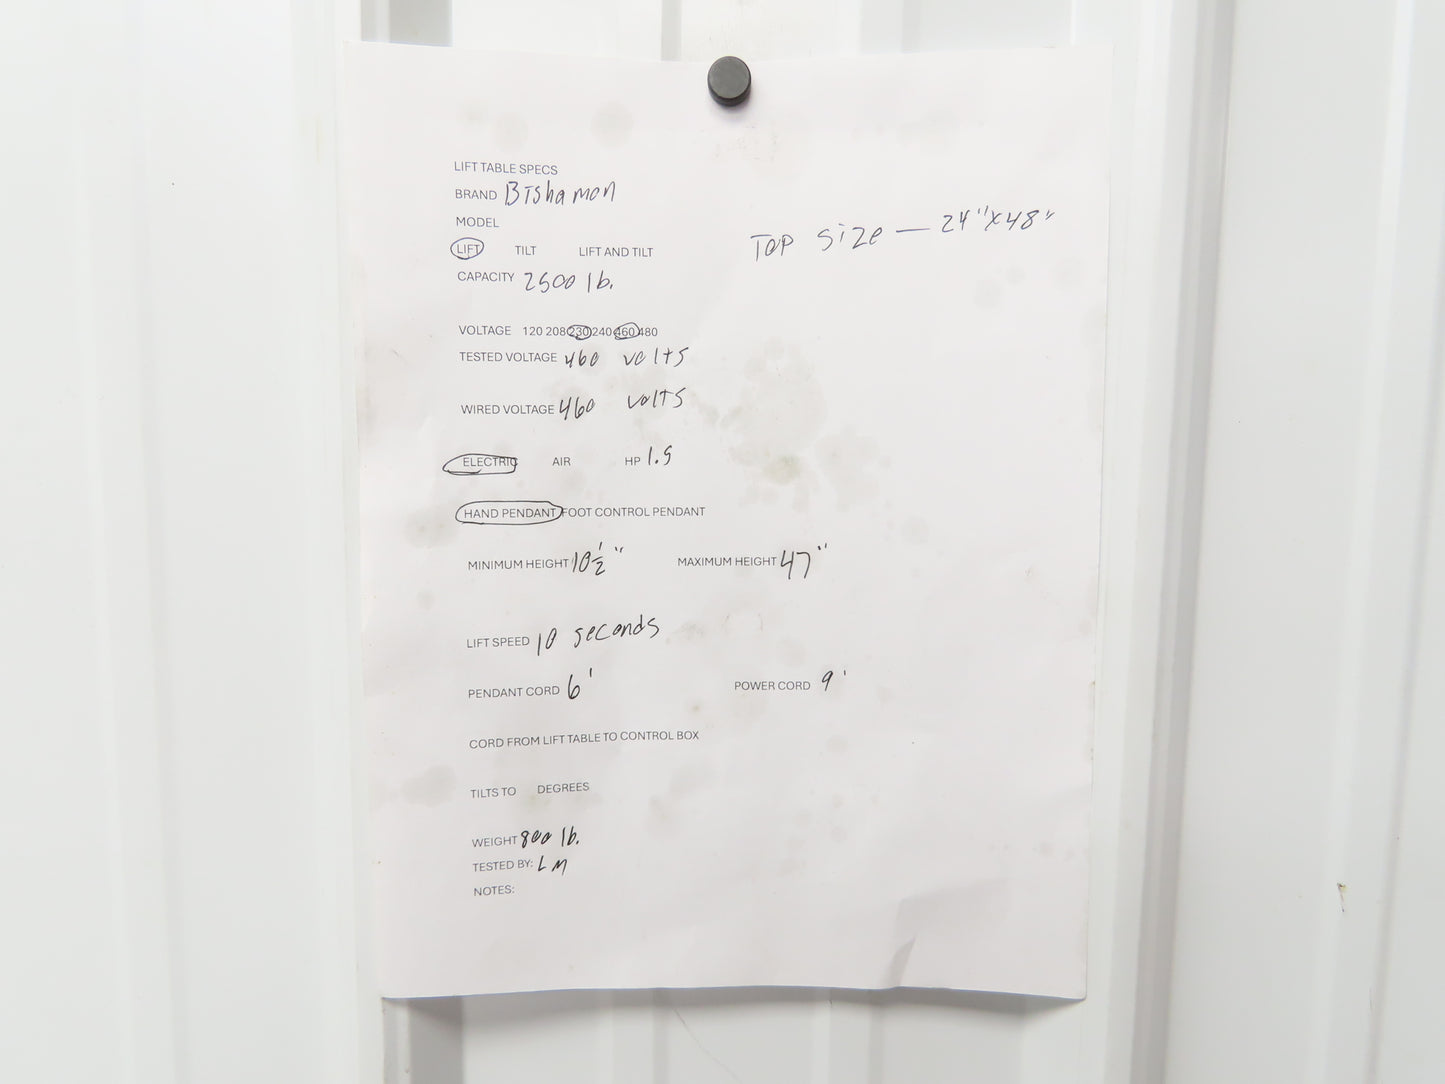 LIFT TABLE SPECS
BRAND Bishamon
MODEL
Top size — 24"x48"
LIFT TILT LIFT AND TILT
CAPACITY 2500 lb.
VOLTAGE 120 208 230 240 460 480
TESTED VOLTAGE 460 volts
WIRED VOLTAGE 460 volts
ELECTRIC AIR HP 1.5
HAND PENDANT FOOT CONTROL PENDANT
MINIMUM HEIGHT 10 1/2" MAXIMUM HEIGHT 47"
LIFT SPEED 10 seconds
PENDANT CORD 6' POWER CORD 9'
CORD FROM LIFT TABLE TO CONTROL BOX
TILTS TO DEGREES
WEIGHT 800 lb.
TESTED BY: LM
NOTES: